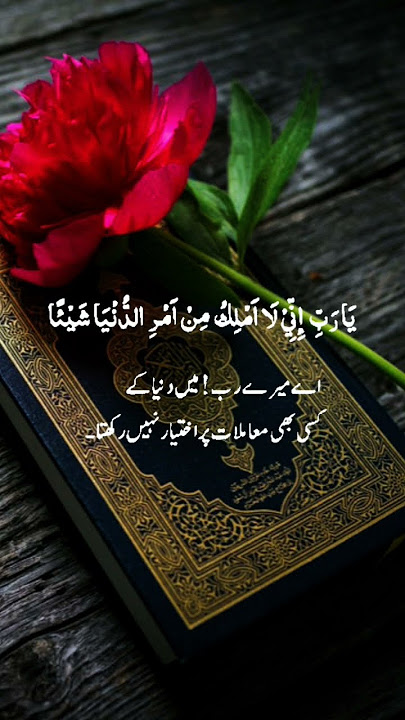 يَا رَبِّ إِنِّي لَا اَمْلِكُ مِنْ اَمْرِ الدُّنْيَا شَيْئًا
اے میرے رب! میں دنیا کے
کسی بھی معاملات پر اختیار نہیں رکھتا۔